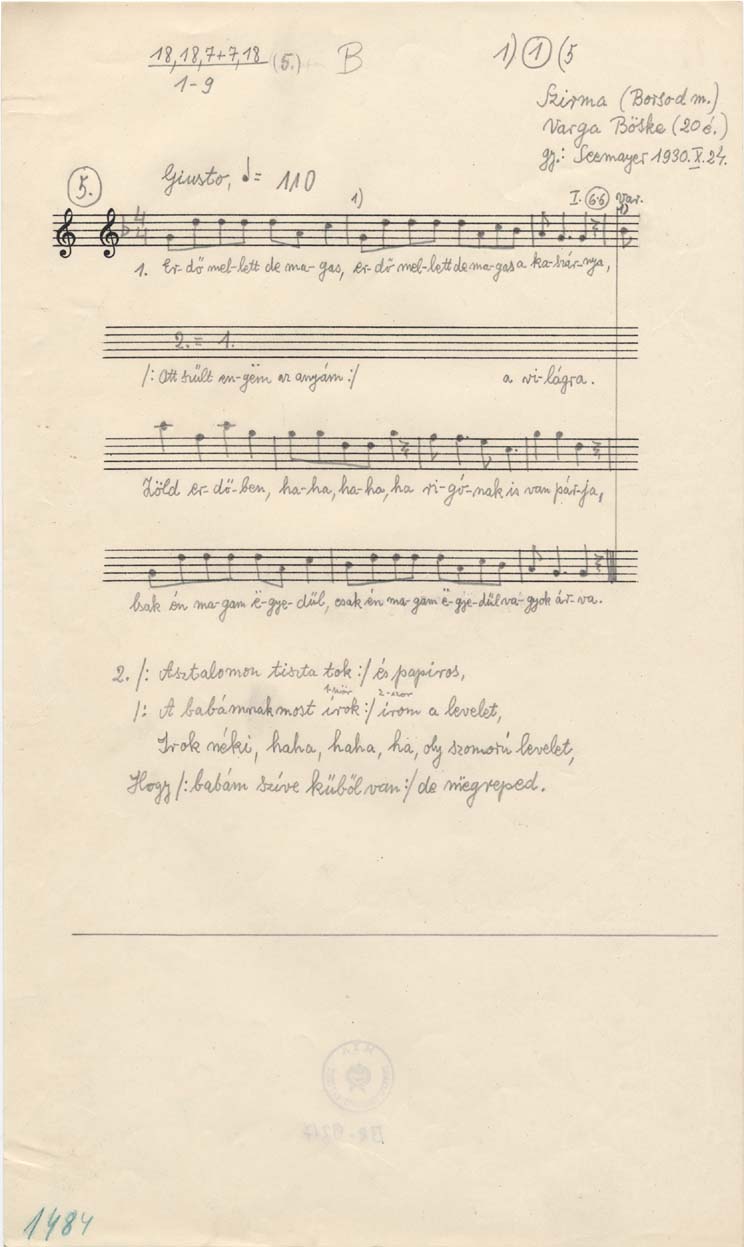 18, 18, 7+7, 18 (5.) B 1) 1 (5
1-9
Szirma (Borsod m.)
Varga Böske (20 é.)
gy.: Seemayer 1930. X. 24.
5. Giusto, ♩= 110
1) I. 6·6 Var.
1)
4
4
1. Er-dő mel-lett de ma-gas, er-dő mel-lett de ma-gas a ka-szár-nya,
2. = 1.
/: Ott szült en-gëm az anyám :/ a vi-lágra.
Zöld er-dő-ben, ha-ha, ha-ha, ha ri-gó-nak is van pár-ja,
Csak én ma-gam ë-gye-dül, csak én ma-gam ë-gye-dül va-gyok ár-va.
2. /: Asztalomon tiszta tok :/ és papíros,
1-ször 2-szor
/: A babámnak most írok :/ írom a levelet,
Irok néki, haha, haha, ha, oly szomorú levelet,
Hogy /: babám szíve kűből van :/ de mëgreped.
1484